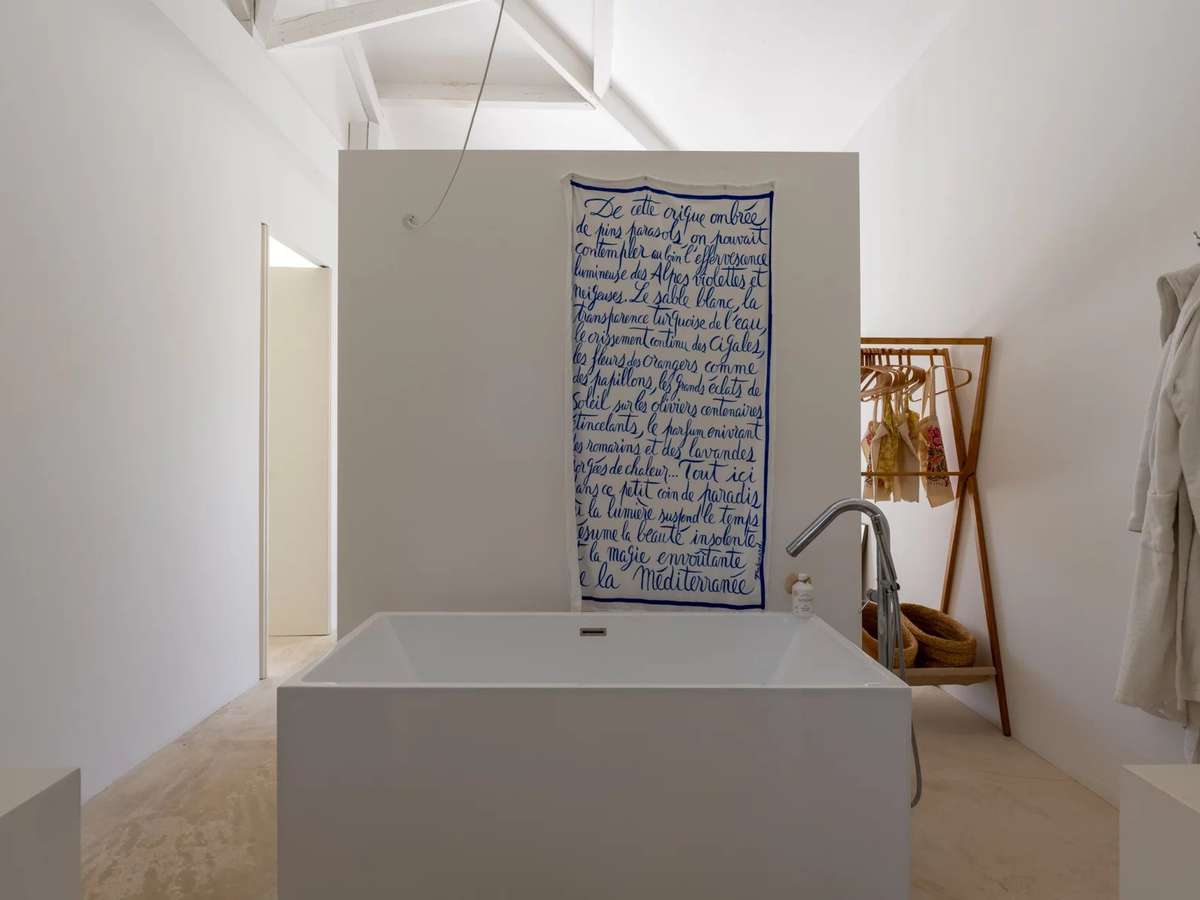 De cette crique ombrée
de pins parasols, on pouvait
contempler au loin l'effervescence
lumineuse des Alpes violettes et
neigeuses. Le sable blanc, la
transparence turquoise de l'eau,
le crissement continu des cigales,
les fleurs des orangers comme
des papillons, les grands éclats de
Soleil sur les oliviers centenaires
étincelants, le parfum enivrant
es romarins et des lavandes
gorgées de chaleur... Tout ici
ans ce petit coin de paradis
à la lumière suspend le temps
ésume la beauté insolente
t la magie envoûtante
e la Méditerranée